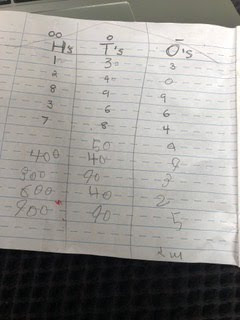 00 0 -
H's T's O's
1 3 3
2 9 0
8 9 9
3 6 6
7 8 4
50 9
400 40
900 90
600 40 2
900 90 5